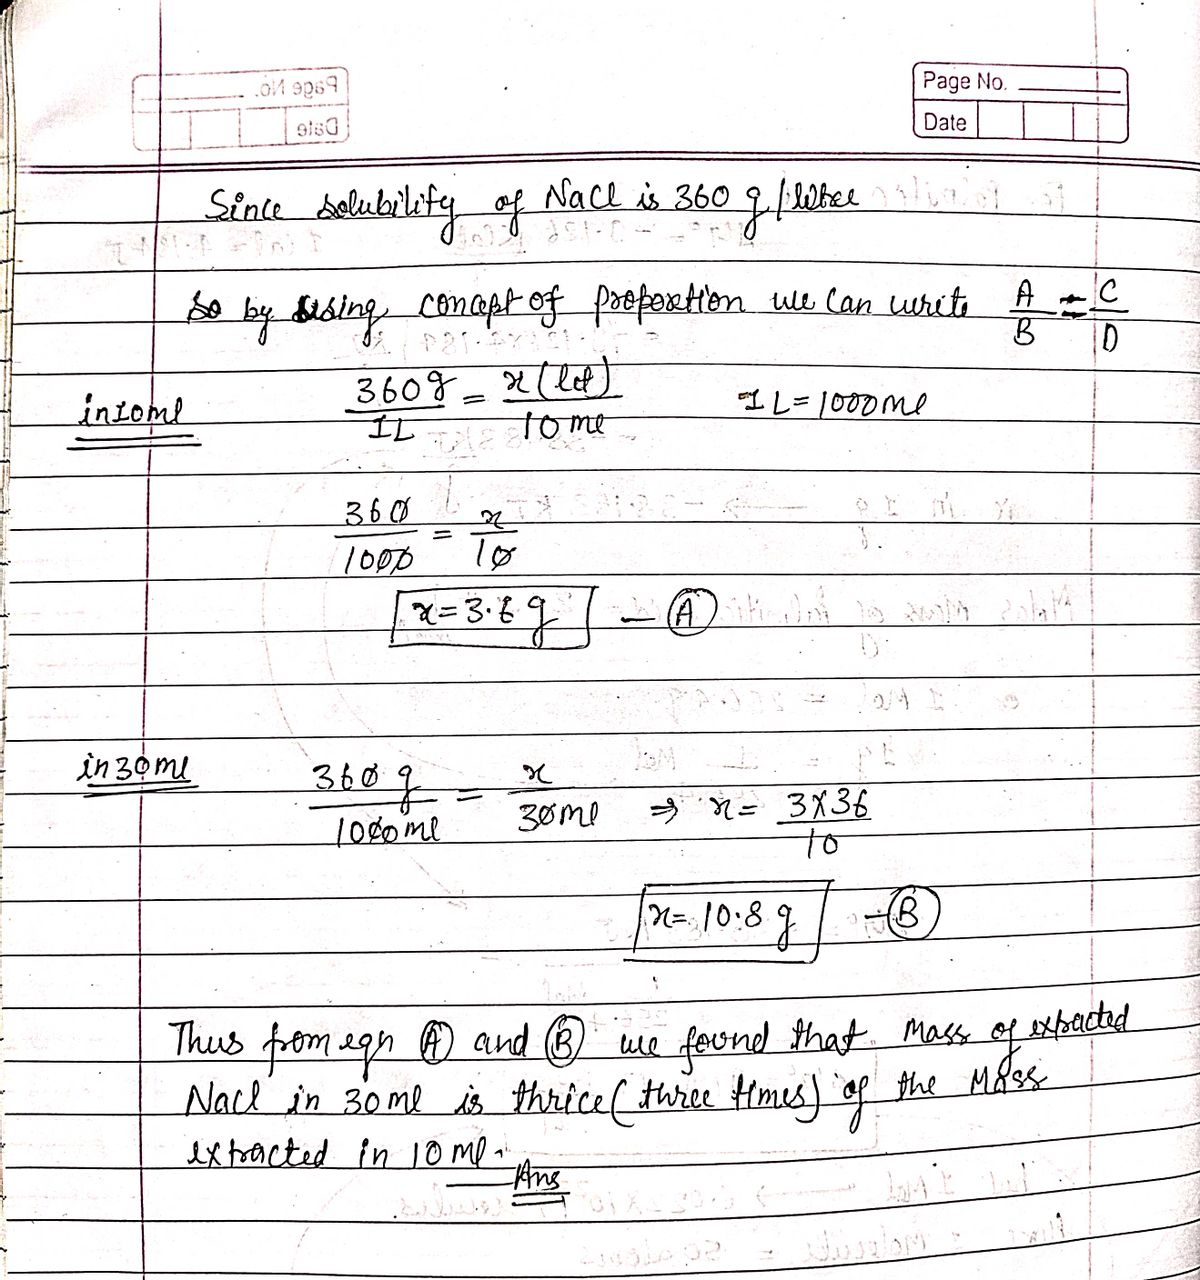 Page No.
Date
Page No.
Date
Since solubility of NaCl is 360 g/litre
so by using concept of proportion we can write A/B = C/D
in 10 ml
360g/1L = x (let)/10 ml 1L = 1000 ml
360/1000 = x/10
x = 3.6 g — (A)
in 30 ml
360 g/1000 ml = x/30 ml ⇒ x = 3×36/10
x = 10.8 g — (B)
Thus from eqn (A) and (B) we found that Mass of extracted
NaCl in 30 ml is thrice (three times) of the Mass
extracted in 10 ml.
Ans